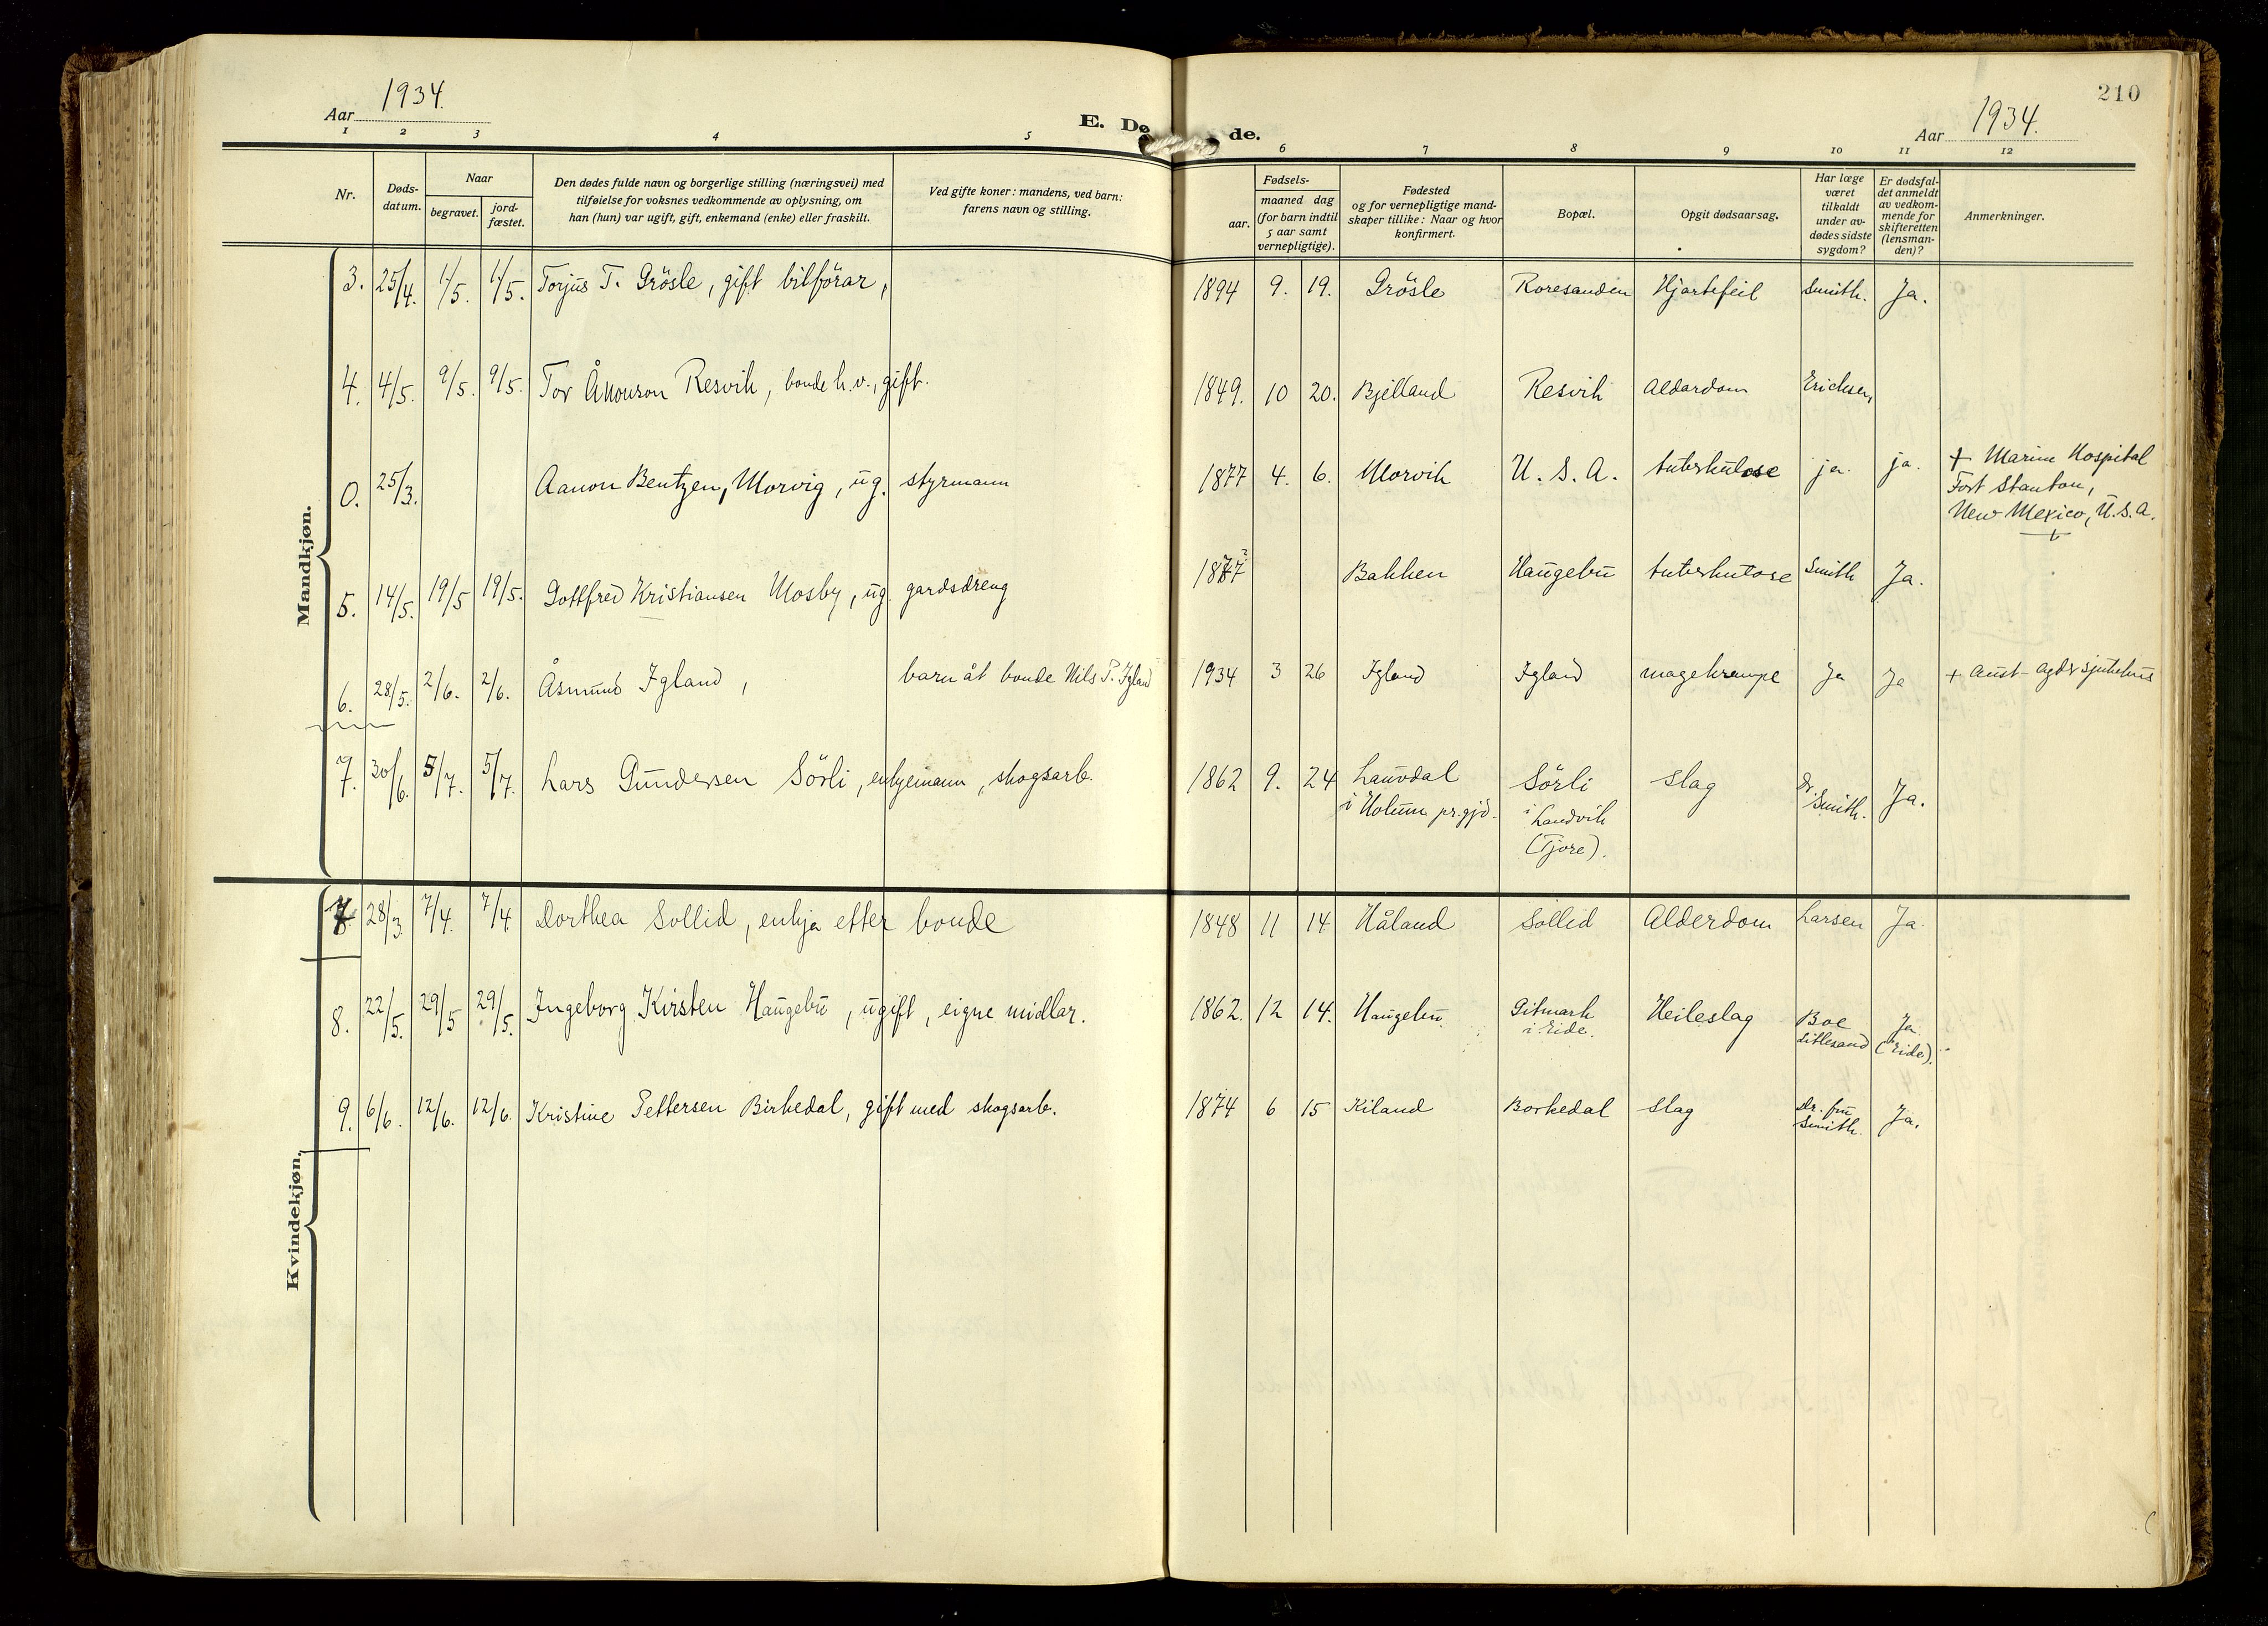 210
Aar 1934.
E. Dø de.
Aar 1934.
1 2 3 4 5 6 7 8 9 10 11 12
Nr.
Døds-
datum.
Naar
begravet.
jord-
fæstet.
Den dødes fulde navn og borgerlige stilling (næringsvei) med
tilføielse for voksnes vedkommende av oplysning, om
han (hun) var ugift, gift, enkemand (enke) eller fraskilt.
Ved gifte koner: mandens, ved barn:
farens navn og stilling.
Fødsels-
aar.
maaned dag
(for barn indtil
5 aar samt
vernepligtige).
Fødested
og for vernepligtige mand-
skaper tillike: Naar og hvor
konfirmert.
Bopæl.
Opgit dødsaarsag.
Har læge
været
tilkaldt
under av-
dødes sidste
sygdom?
Er dødsfal-
det anmeldt
av vedkom-
mende for
skifteretten
(lensman-
den)?
Anmerkninger.
Mandkjøn.
3. 25/4. 1/5. 1/5. Torjus T. Grösle, gift bilförar, 1894 9. 19. Grösle Roresanden Hjartefeil Smith. Ja.
4. 4/5. 9/5. 9/5. Tor Ånonson Resvik, bonde h.v., gift. 1849. 10 20. Bjelland Resvik Aldardom Erichsen,
0. 25/3. Aanon Bentzen, Morvig, ug. styrmann 1877 4. 6. Morvik U. S. A. tuberkulose ja. ja. + Marine Hospital
Fort Stanton,
New Mexico, U.S.A.
5. 14/5. 19/5 19/5. Gottfred Kristiansen Mosby, ug. gardsdreng 1877 Bakken Haugebu tuberkulose Smith Ja.
6. 28/5. 2/6. 2/6. Åsmund Igland, barn åt bonde Nils P. Igland 1934 3 26 Igland Igland magekrampe Ja Ja + Aust-Agder sjukehus
7. 30/6. 5/7. 5/7. Lars Gundersen Sörli, enkjemann, skogsarb. 1862 9. 24 Lauvdal
i Holum pr.gjd.
Sörli
i Landvik
(Tjore).
slag
Dr.
Smith.
Ja.
Kvindekjøn.
7. 28/3. 7/4. 7/4 Dorthea Sollid, enkja etter bonde 1848 11 14 Håland Sollid Alderdom Larsen Ja
8. 22/5. 29/5 29/5. Ingeborg Kirsten Haugebu, ugift, eigne midlar. 1862. 12 14. Haugebu.
Gitmark
i Eide.
Heileslag
Boe
Lillesand
Ja
(Eide).
9. 6/6. 12/6. 12/6. Kristine Pettersen Birkedal, gift med skogsarb. 1874 6 15 Kiland Borkedal slag
Dr. fru
Smith.
Ja.